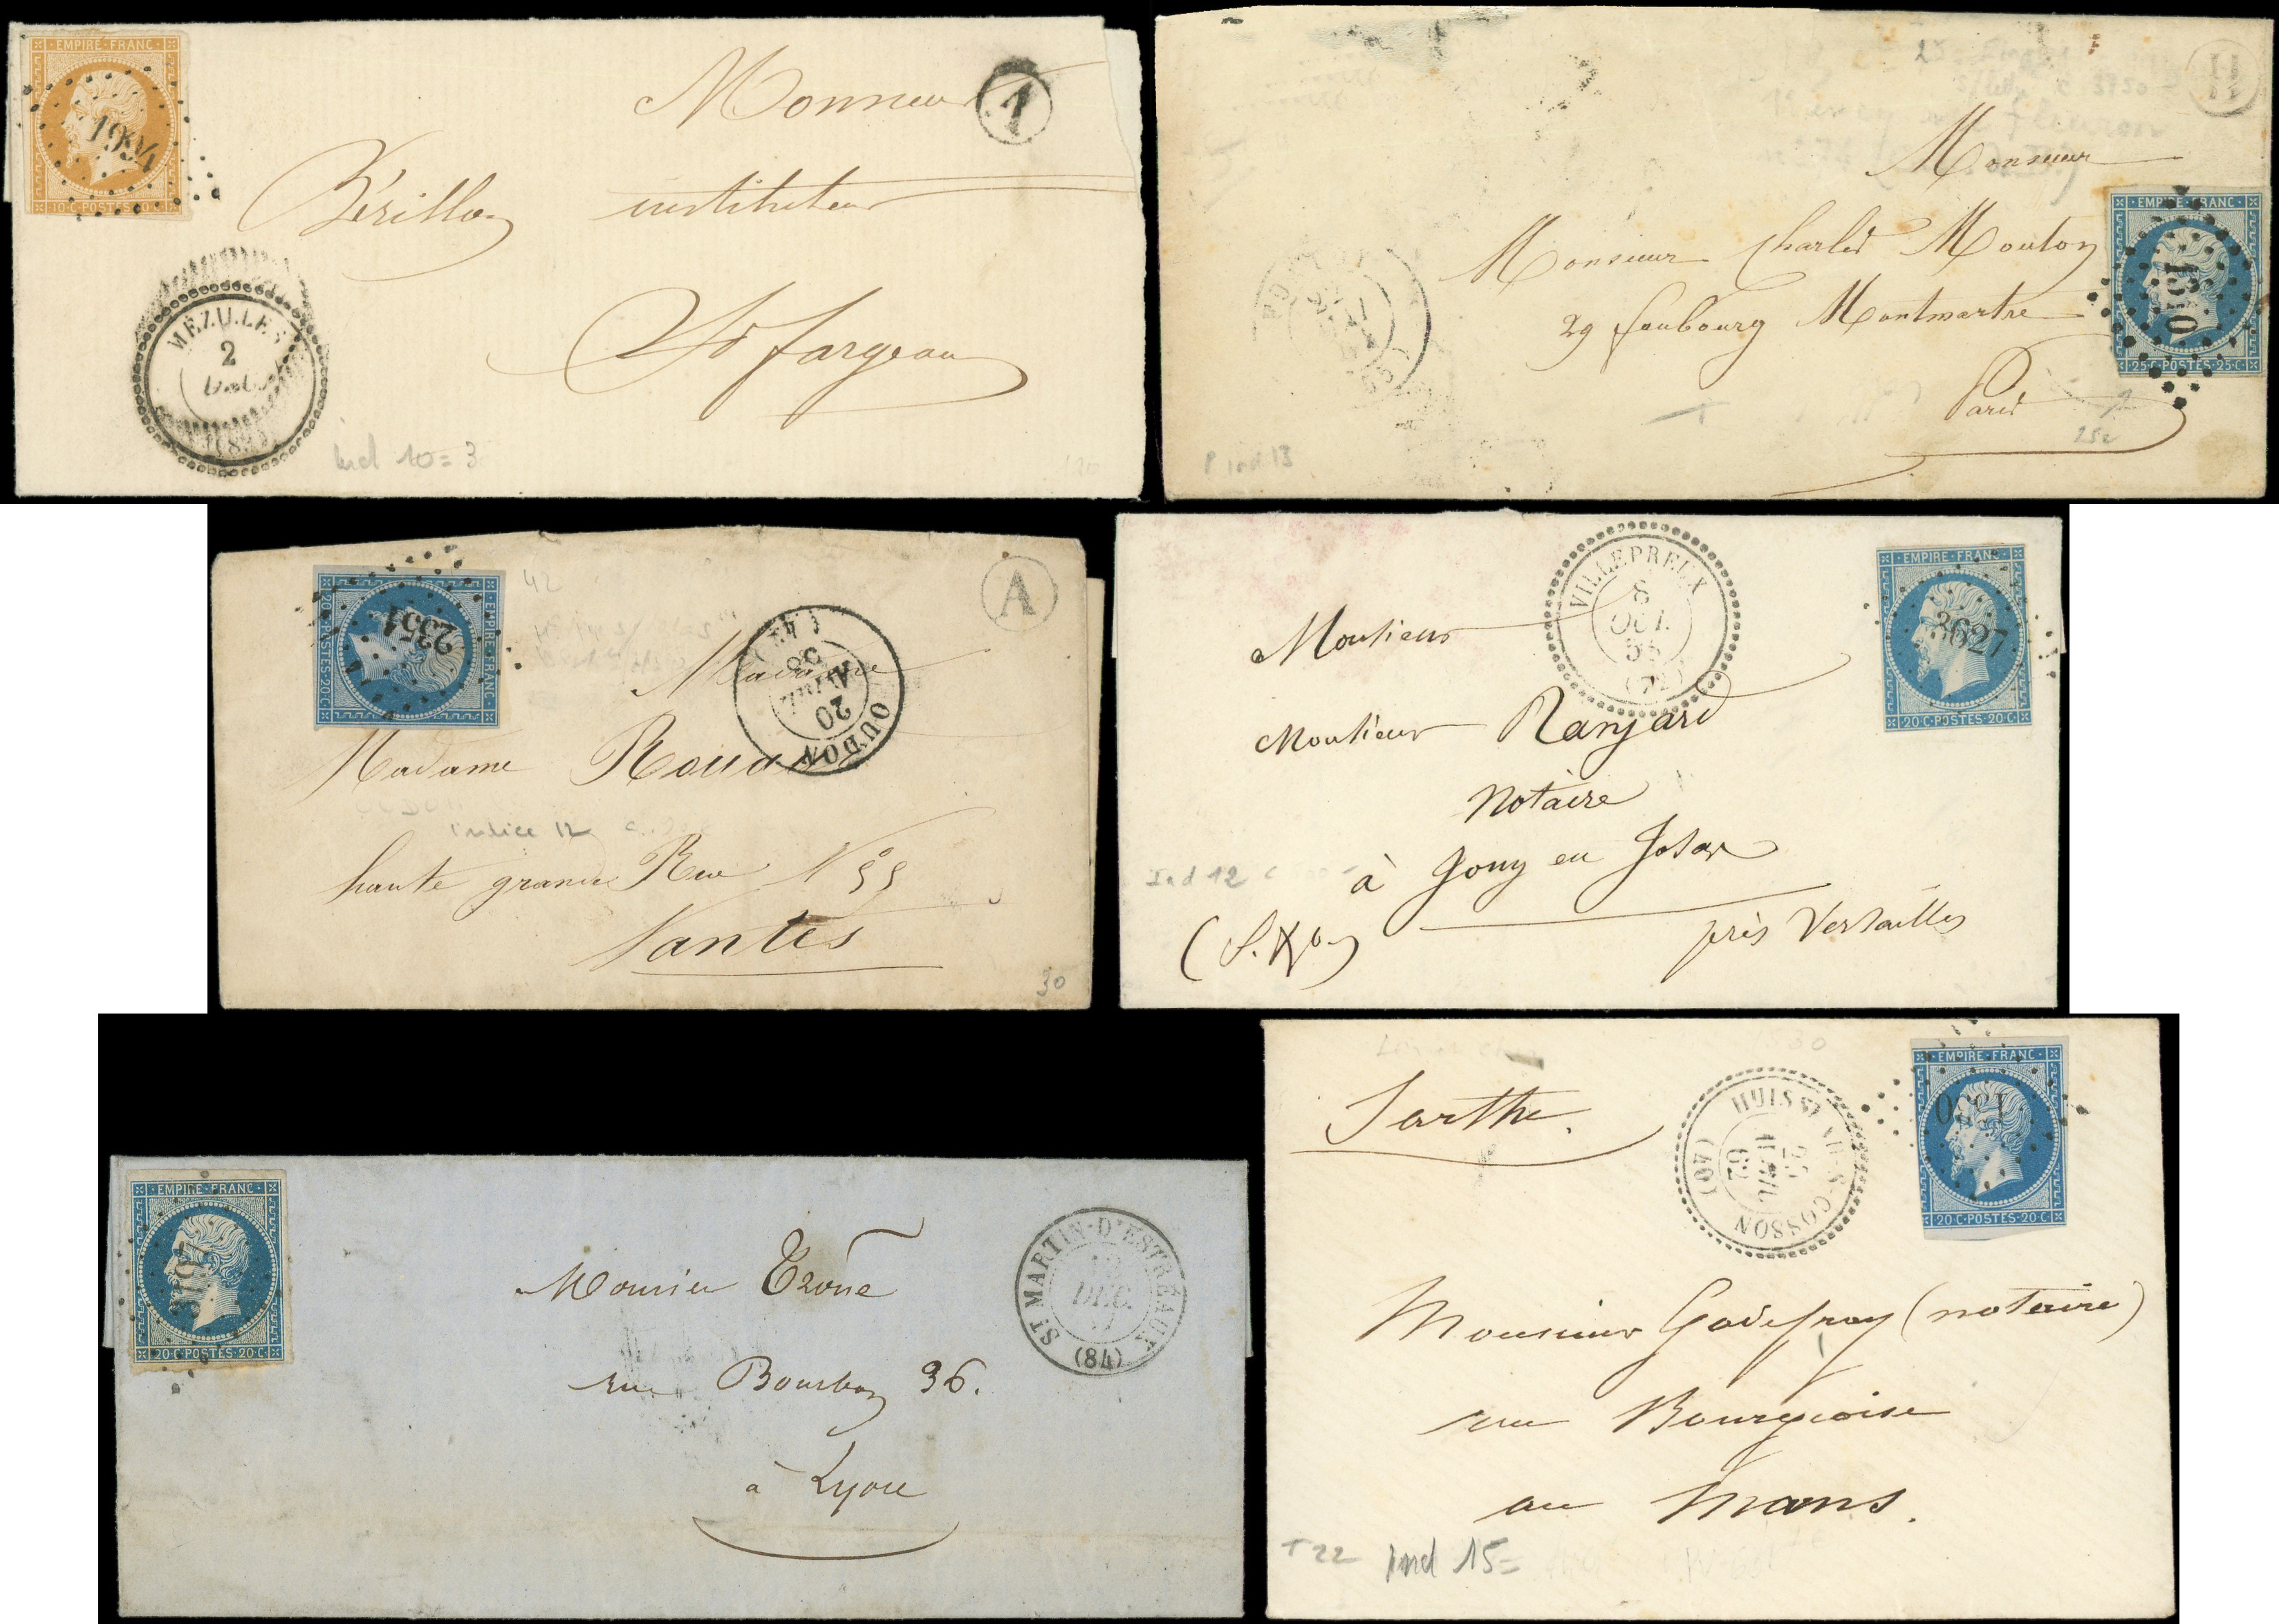 EMPIRE·FRANC·
1994
10·C·POSTES·10·C·
Monsieur
1
Bérillon
instituteur
St fargeau
MÉZILLES
2
(83)
ind 10 = 3
H
Monsieur
Monsieur Charles Mouton
29 faubourg Montmartre
Paris
EMPIRE·FRANC·
1310
·25·C·POSTES·25·C·
25c
P ind 13
EMPIRE·FRANC·
2351
20·C·POSTES·20·C·
42
A
Madame
OUDON
20
AVRIL
58
Madame
indice 12
haute grande Rue N° 55
Nantes
30
VILLEPREUX
8
OCT.
55
(72)
EMPIRE·FRANC·
3627
20·C·POSTES·20·C·
Monsieur
Monsieur Ranjard
Notaire
à Jouy en Josas
Ind 12
près Versailles
EMPIRE·FRANC·
3197
20·C·POSTES·20·C·
ST MARTIN-D'ESTREAUX
DEC.
(84)
Monsieur
rue Bourbon 36.
à Lyon
Sarthe.
HUISSEAU-S-COSSON
62
(40)
EMPIRE·FRANC·
20·C·POSTES·20·C·
Monsieur Godefroy (notaire)
rue Bourgeoise
au Mans.
T 22
ind 15 =